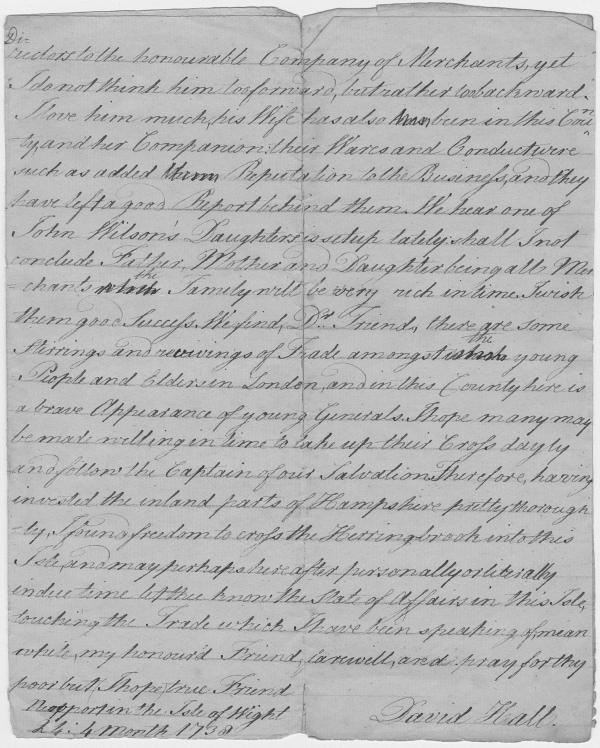 Di=
rectors to the honourable Company of Merchants, yet
I do not think him too forward, but rather too backward.
I love him much, his Wife has also been in this Coun
ty, and her Companion: their Wares and Conduct were
such as added Reputation to the Business, and they
have left a good Report behind them. We hear one of
John Wilson's Daughters is set up lately: shall I not
conclude Father, Mother and Daughter being all Mer
=chants the Family will be very rich in time. I wish
them good Success. We find, Dr. Friend, there are some
Stirrings and revivings of Trade amongst the young
People and Elders in London, and in this County here is
a brave Appearance of young Generals. I hope many may
be made willing in time to take up their Cross dayly
and follow the Captain of our Salvation. Therefore, having
invested the inland parts of Hampshire pretty thorough
=ly, I found freedom to cross the Herring brook into this
Isle, and may perhaps hereafter personally or literally
in due time let thee know the State of Affairs in this Isle,
touching the Trade which I have been speaking of, mean
while, my honour'd Friend, farewell, and pray for thy
poor but, I hope, true Friend
David Hall.
Newport in the Isle of Wight
24: 4 Month